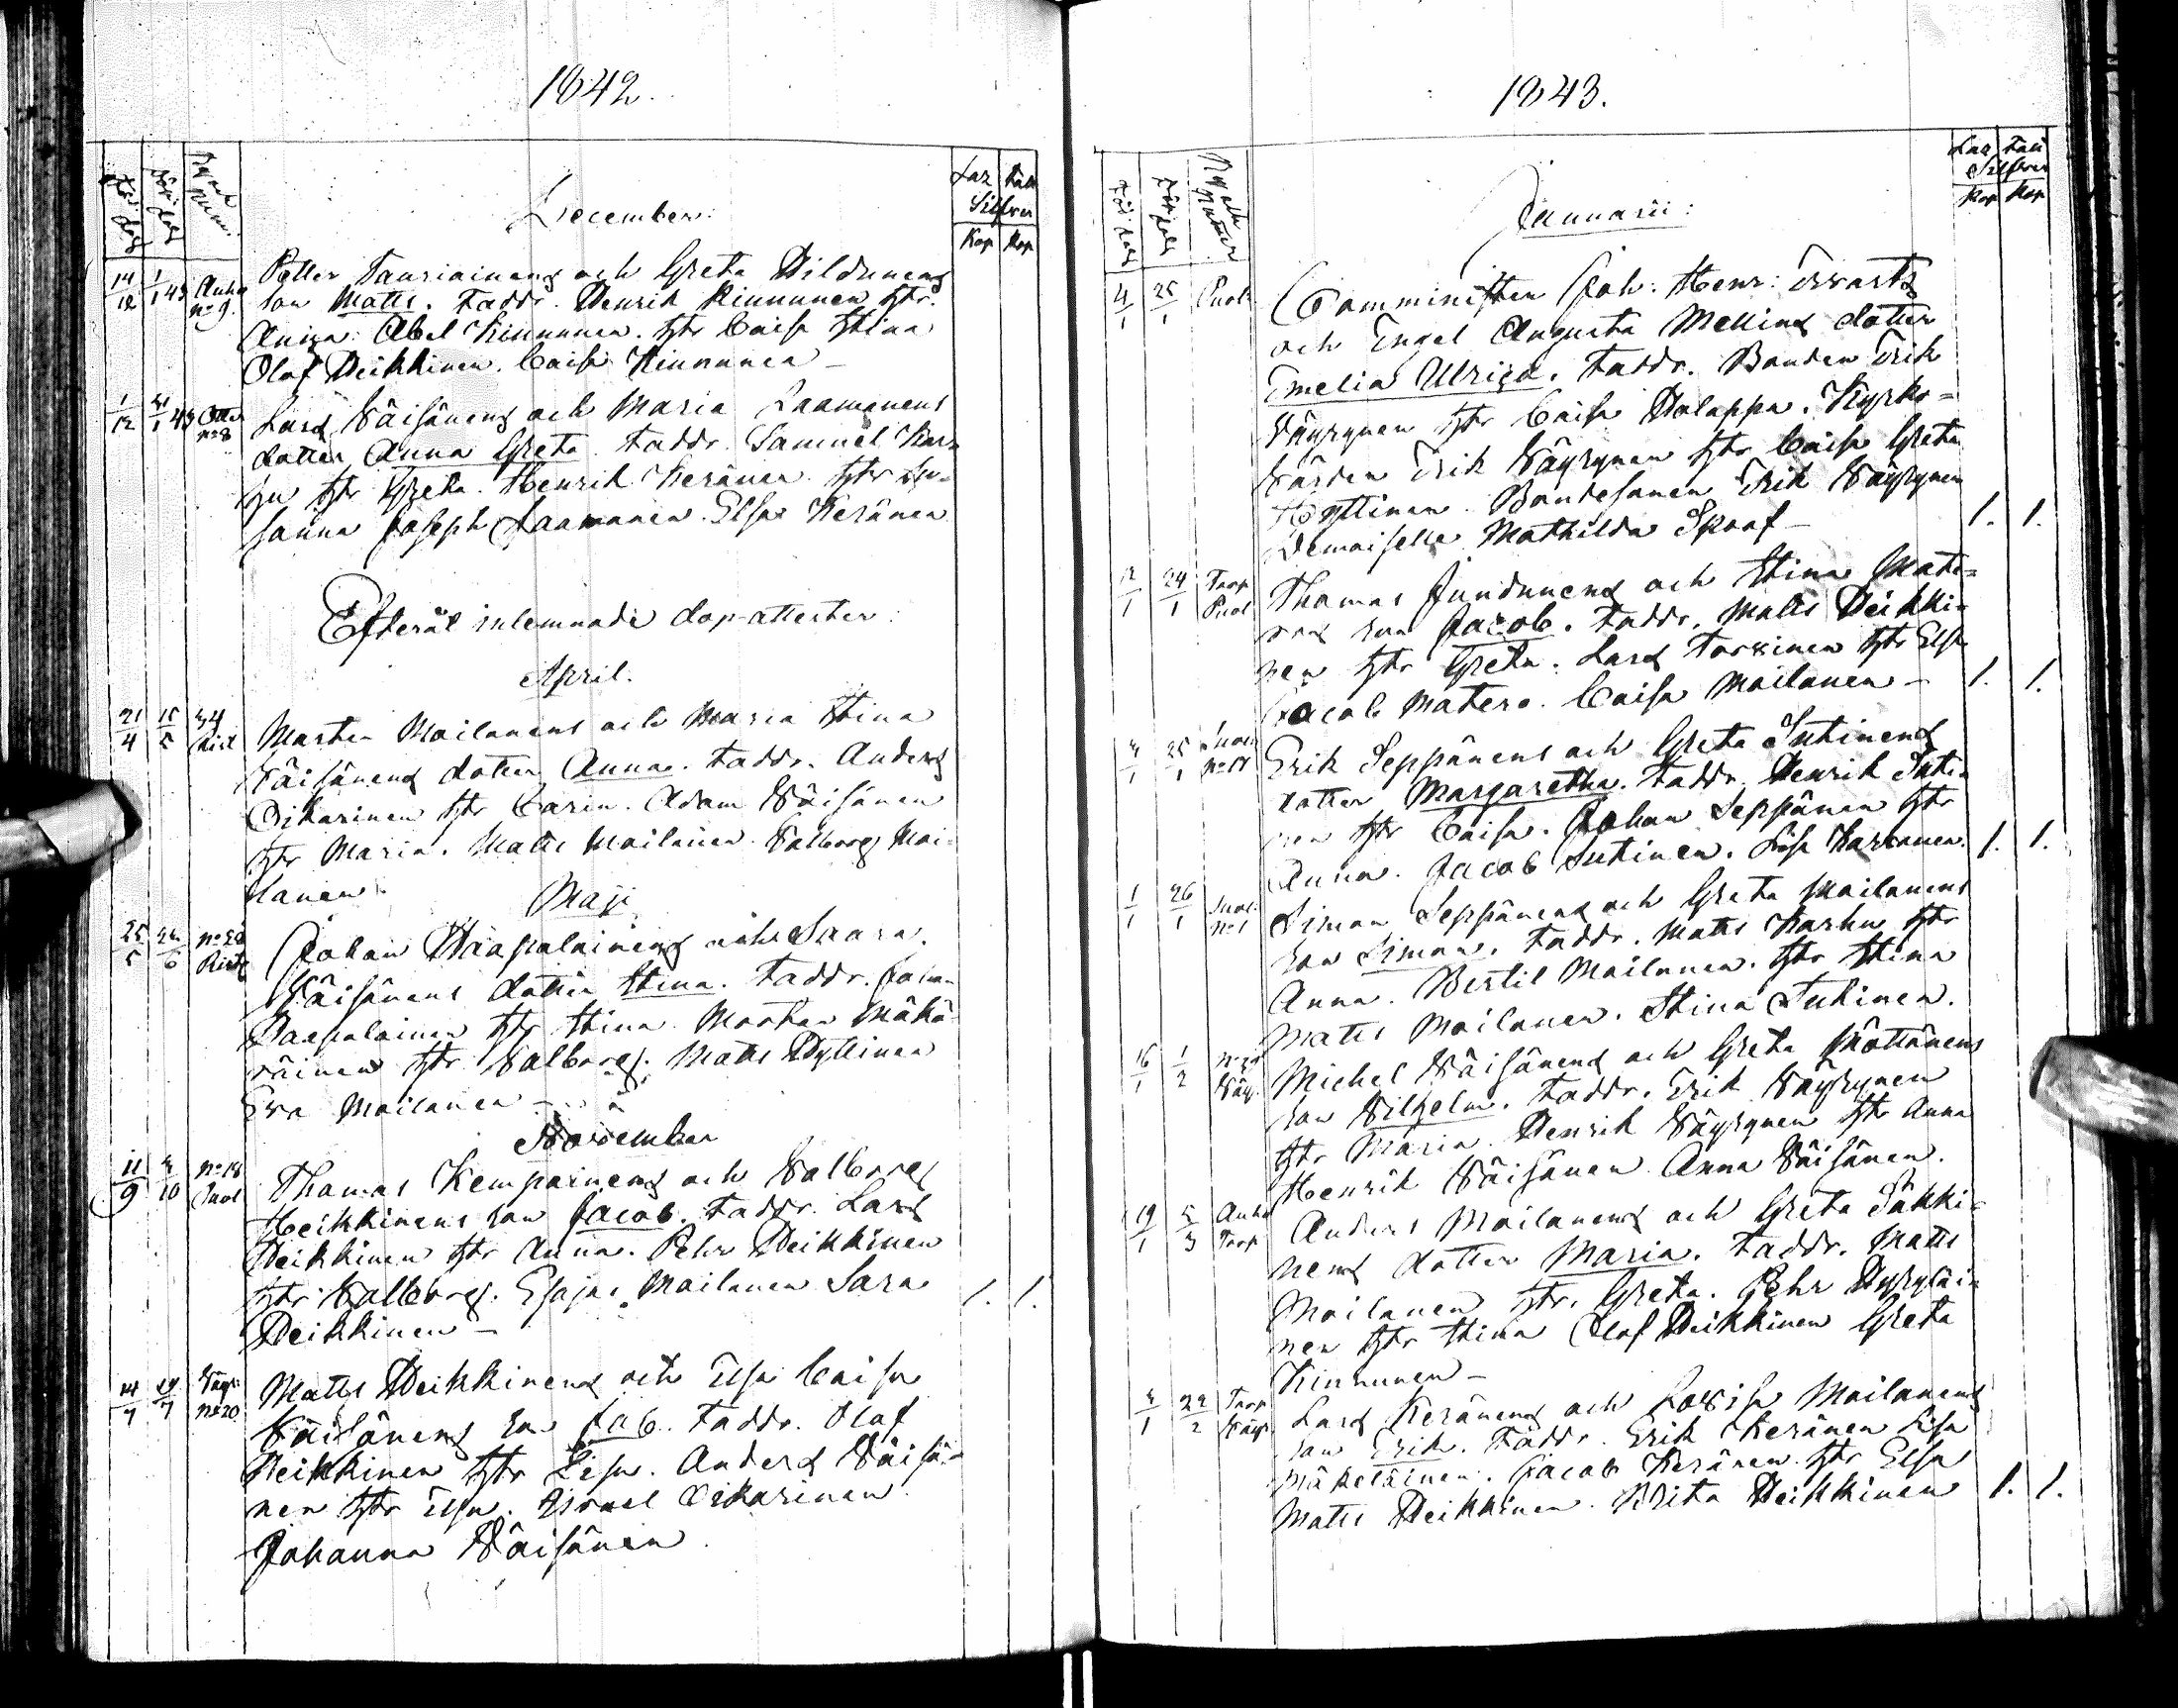 1842.
Född dag
Döpt dag
By och Num.
Laz Fatt
Silfver
Kop Kop
December:
14/12 1/1 43 Anha no 9.
Petter Tauriainens och Greta Hildunens
son Matts. Faddr. Henrik Kinnunen htr.
Anna: Abel Kinnunen. htr Caisa Stina
Olof Heikkinen. Caisa Kinnunen –
1/12 /1 43 no 8
Lars Väisänens och Maria Laamanens
dotter Anna Greta. Faddr. Samuel Kar=
hu htr Greta. Henrik Keränen htr Su=
sanna Joseph Laamanen. Elsa Keränen
Efteråt inlemnade dop-attester:
April.
21/4 15/5 34 Rist
Morten Moilanens och Maria Stina
Väisänens dotter Anna. Faddr. Anders
Oikarinen htr Carin. Adam Väisänen
htr Maria. Matts Moilanen. Valborg Moi=
lanen
Maji
25/5 /6 Rist
Johan Haapalainens och Saara
Väisänens dotter Stina. Faddr. Johan
Haapalainen htr Stina. Morten Mähö=
räinen htr Valborg. Matts Hyttinen
Eva Moilanen –
November
11/9 /10 no 18
Thomas Kempainens och Valborg
Heikkinens son Jacob. Faddr. Lars
Heikkinen htr Anna. Pehr Heikkinen
htr Valborg. Esajas Moilanen Sara
Heikkinen –
1. 1.
14/7 /7 Väyr. no 20
Matts Heikkinens och Elsa Caisa
Väisänens son Job. Faddr. Olof
Heikkinen htr Lisa. Anders Väisä=
nen htr Elsa. Israel Oikarinen
Johanna Väisänen.
1843.
Född dag
Döpt dag
By och Numer
Laz Fatt
Silfver
Kop Kop
Januarii:
4/1 25/1 Puol
Comministen Joh: Henr: Svartz
och Engel Augusta Mellins dotter
Emelia Ulrica. Faddr. Bonden Erik
Väyrynen htr Caisa Halappa. Kyrko=
värden Erik Väyrynen htr Caisa Greta
Hyttinen. Bondesonen Erik Väyrynen
Demoiselle Mathilda Skoof –
1. 1.
12/1 24/1 Torp Puol
Thomas Jundunens och Stina Mate=
ros son Jacob. Faddr. Matts Heikki=
nen htr Greta. Lars Torvinen htr Elsa
Jacob Matero. Caisa Moilanen –
1. 1.
/1 25/1 no 18
Erik Seppänens och Greta Sutinens
dotter Margaretha. Faddr. Henrik Suti=
nen htr Caisa. Johan Seppänen htr
Anna. Jacob Sutinen. Lisa Karvonen.
1. 1.
1/1 26/1 no 1
Simon Seppänens och Greta Moilanens
son Simon. Faddr. Matts Karhu htr
Anna. Bertil Moilanen. htr Stina
Matts Moilanen. Stina Sutinen.
16/1 1/2 Väyr.
Michel Väisänens och Greta Möttönens
son Vilhelm. Faddr. Erik Väyrynen
htr Maria. Henrik Väyrynen htr Anna
Henrik Väisänen Anna Väisänen.
19/1 5/3 Anha Torp
Anders Moilanens och Greta Säkki=
nens dotter Maria. Faddr. Matts
Moilanen htr. Greta. Pehr Hyryläi=
nen htr Stina Olof Heikkinen Greta
Kinnunen –
/1 22/2 Torp Väyr.
Lars Keränens och Lovisa Moilanens
son Erik. Faddr. Erik Keränen Lisa
Mäkeläinen. Jacob Keränen htr Elsa
Matts Heikkinen. Brita Heikkinen
1. 1.